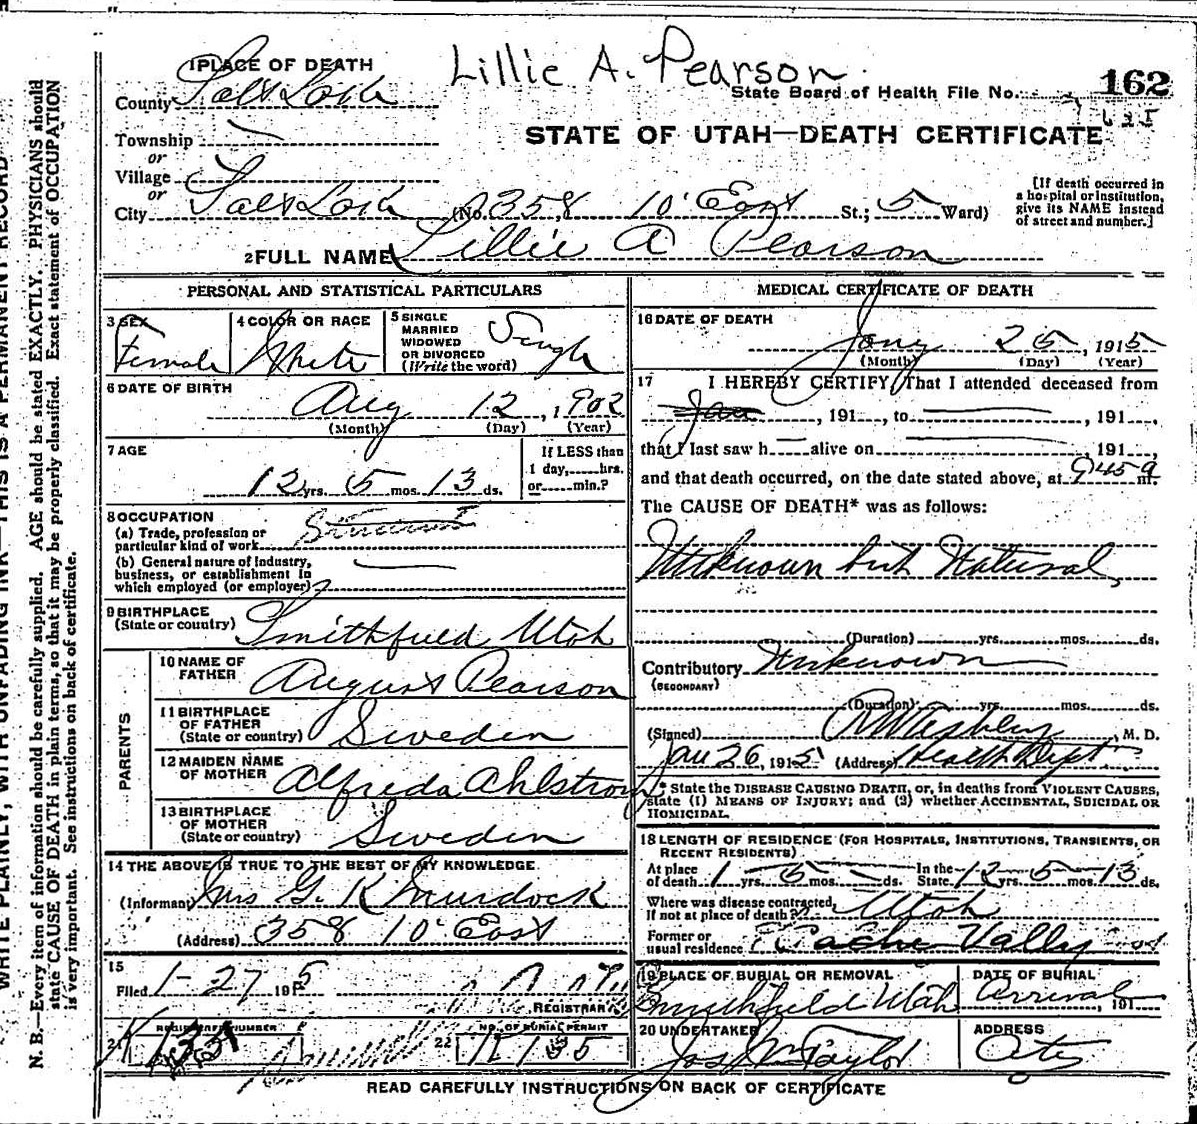 Lillie A. Pearson
1 PLACE OF DEATH
County Salt Lake
State Board of Health File No. 162
635
Township
or
Village
or
STATE OF UTAH—DEATH CERTIFICATE
City Salt Lake (No. 358 10' East St.; 5 Ward)
[If death occurred in a hospital or institution, give its NAME instead of street and number.]
2 FULL NAME Lillie A Pearson
PERSONAL AND STATISTICAL PARTICULARS
3 SEX
Female
4 COLOR OR RACE
White
5 SINGLE MARRIED WIDOWED OR DIVORCED (Write the word)
Single
6 DATE OF BIRTH
Aug 12, 1902
(Month) (Day) (Year)
7 AGE
12 yrs. 5 mos. 13 ds.
If LESS than 1 day, hrs. or min.?
8 OCCUPATION
(a) Trade, profession or particular kind of work Student
(b) General nature of Industry, business, or establishment in which employed (or employer)
9 BIRTHPLACE
(State or country) Smithfield Utah
PARENTS
10 NAME OF FATHER August Pearson
11 BIRTHPLACE OF FATHER (State or country) Sweden
12 MAIDEN NAME OF MOTHER Alfreda Ahlstrom
13 BIRTHPLACE OF MOTHER (State or country) Sweden
14 THE ABOVE IS TRUE TO THE BEST OF MY KNOWLEDGE
(Informant) Mrs G. K Murdock
(Address) 358 10' East
15
Filed 1-27 1915
REGISTRAR
21 REGISTERED NUMBER
22 NO. OF BURIAL PERMIT
MEDICAL CERTIFICATE OF DEATH
16 DATE OF DEATH
Jany 25, 1915
(Month) (Day) (Year)
17 I HEREBY CERTIFY, That I attended deceased from
Jan, 191 , to , 191 ,
that I last saw h alive on 191 ,
and that death occurred, on the date stated above, at 945 a m.
The CAUSE OF DEATH* was as follows:
Unknown but Natural
(Duration) yrs. mos. ds.
Contributory Unknown
(SECONDARY)
(Duration) yrs. mos. ds.
(Signed) , M. D.
Jan 26, 1915 (Address) Health Dept
* State the DISEASE CAUSING DEATH, or, in deaths from VIOLENT CAUSES, state (1) MEANS OF INJURY; and (2) whether ACCIDENTAL, SUICIDAL OR HOMICIDAL.
18 LENGTH OF RESIDENCE (FOR HOSPITALS, INSTITUTIONS, TRANSIENTS, OR RECENT RESIDENTS)
At place of death 1 yrs. 5 mos. ds. In the State 12 yrs. 5 mos. 13 ds.
Where was disease contracted, If not at place of death? Utah
Former or usual residence Cache Vally
19 PLACE OF BURIAL OR REMOVAL
Smithfield Utah
DATE OF BURIAL
Arrival 191
20 UNDERTAKER
Jos Wm Taylor
ADDRESS
City
READ CAREFULLY INSTRUCTIONS ON BACK OF CERTIFICATE
WRITE PLAINLY, WITH UNFADING INK—THIS IS A PERMANENT RECORD
N. B.—Every item of information should be carefully supplied. AGE should be stated EXACTLY. PHYSICIANS should
state CAUSE OF DEATH in plain terms, so that it may be properly classified. Exact statement of OCCUPATION
is very important. See instructions on back of certificate.